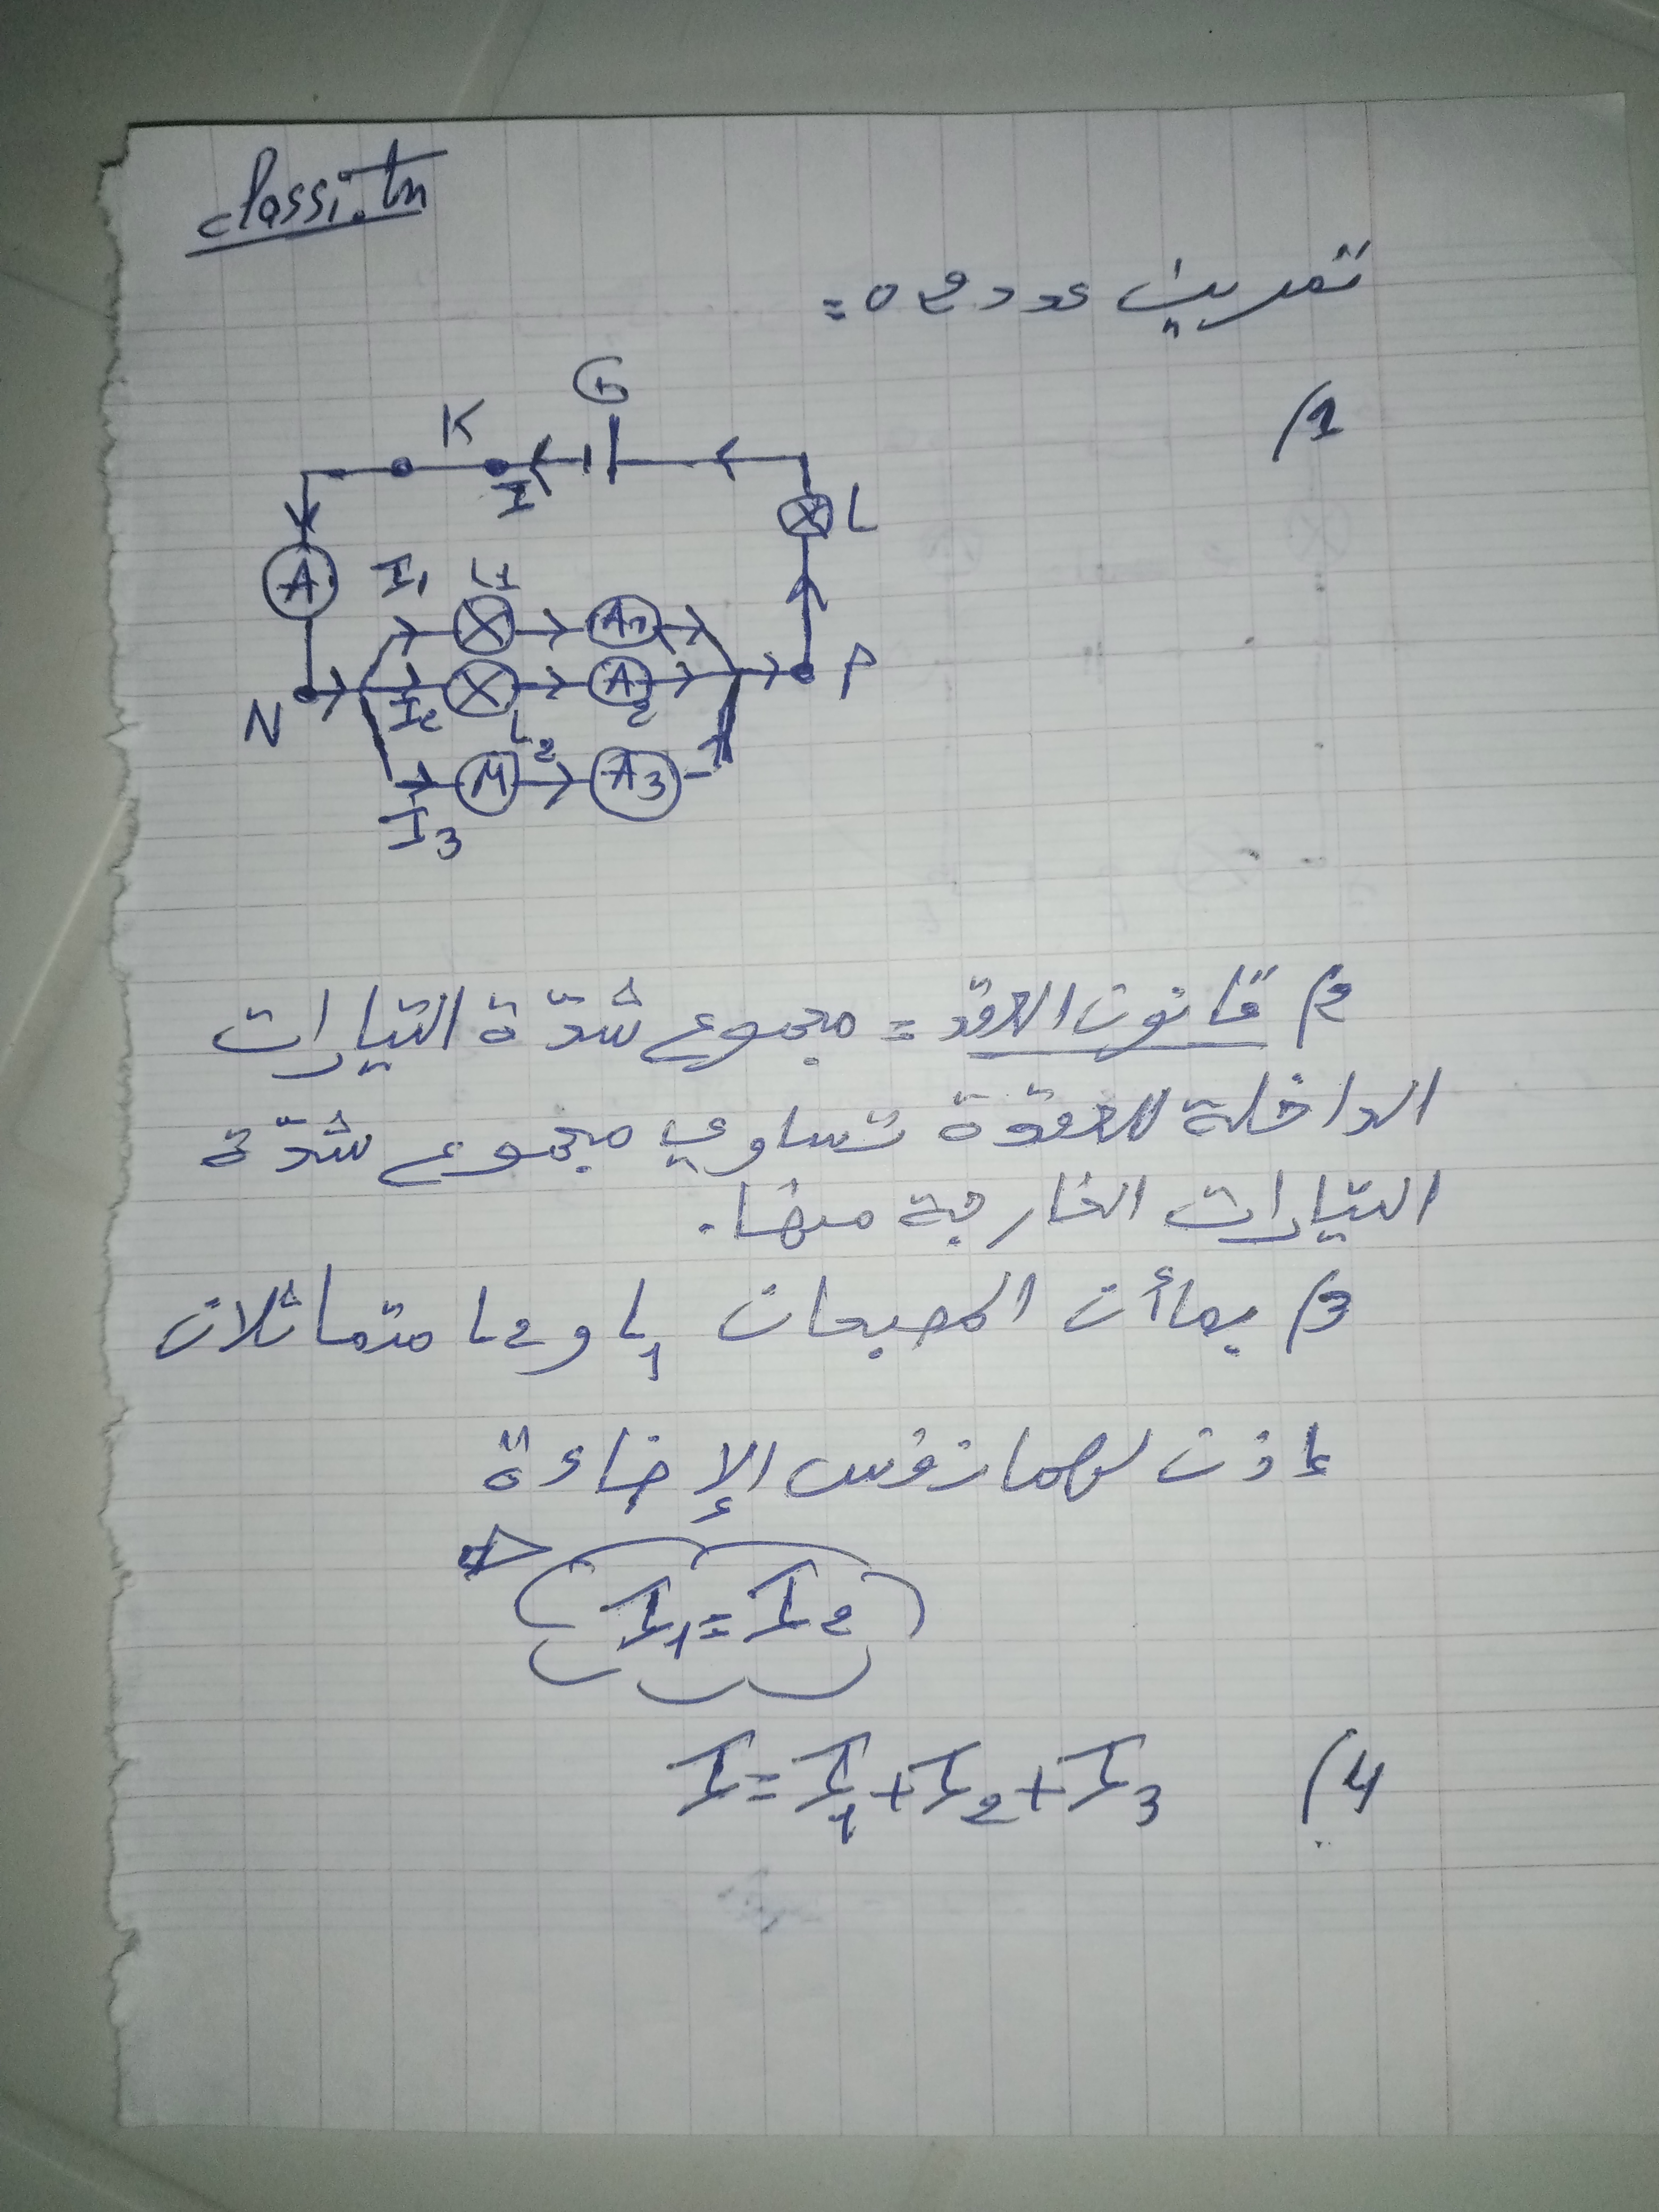 classi.tn
تمرين عدد 02 =
1/
G
K
I
L
A
I1
L1
A1
N
I2
L2
A2
P
M
A3
I3
2/ قانون العقد = مجموع شدّة التيارات
الداخلة للعقدة تساوي مجموع شدّة
التيارات الخارجة منها.
3/ بما أن المصبحان L1 و L2 متماثلان
إذن لهما نفس الإضاءة
I1 = I2
4/ I = I1 + I2 + I3